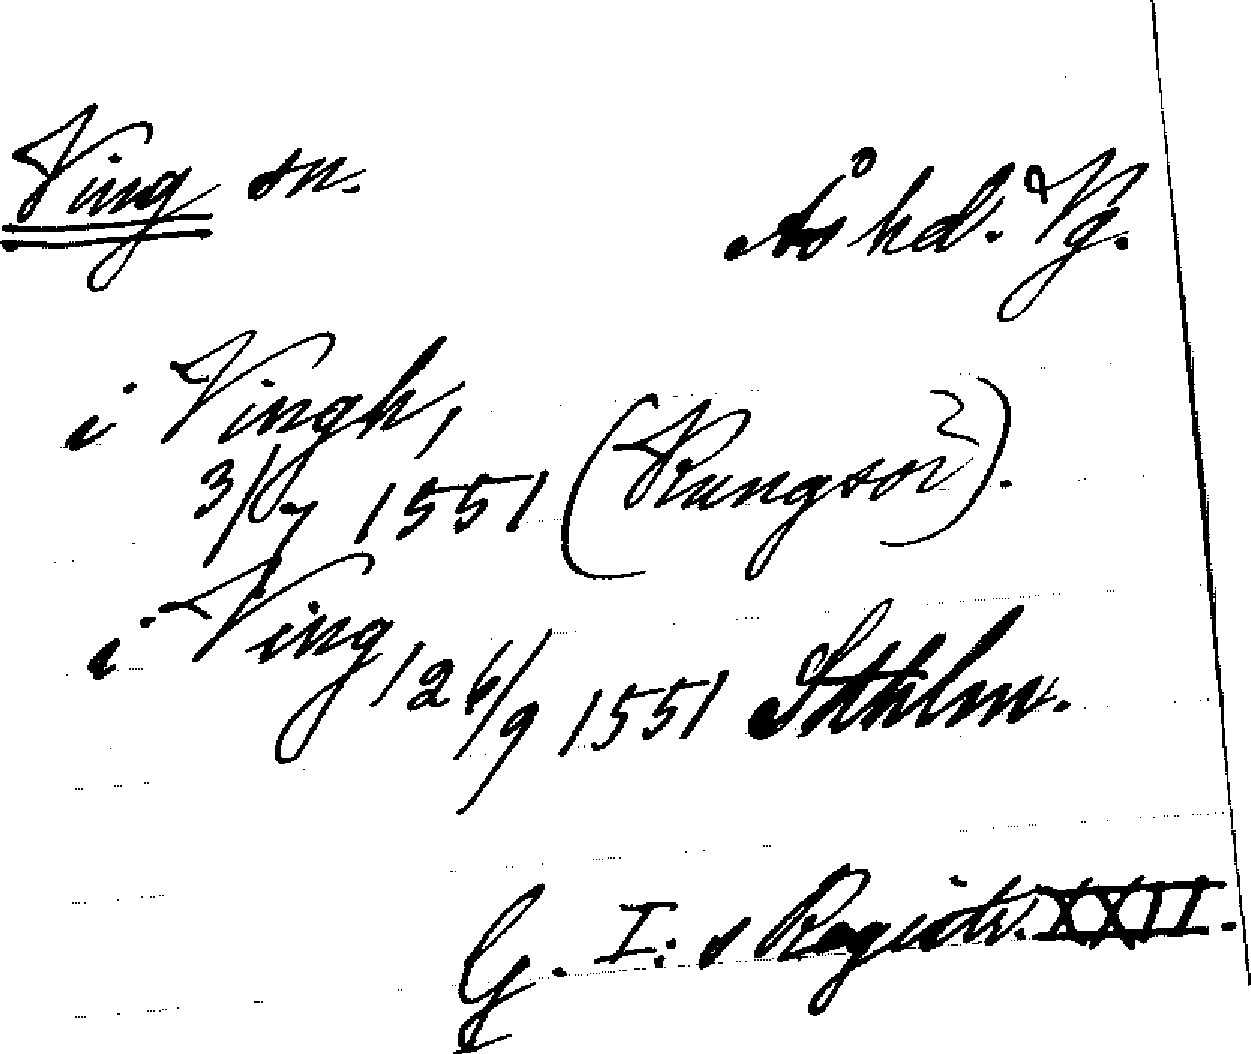 Ving sn.
Ås hd. Vg.
i Vingh,
3/7 1551 (Kungsör).
i Ving, 26/9 1551 Sthlm.
G. I:s Registr. XXII.